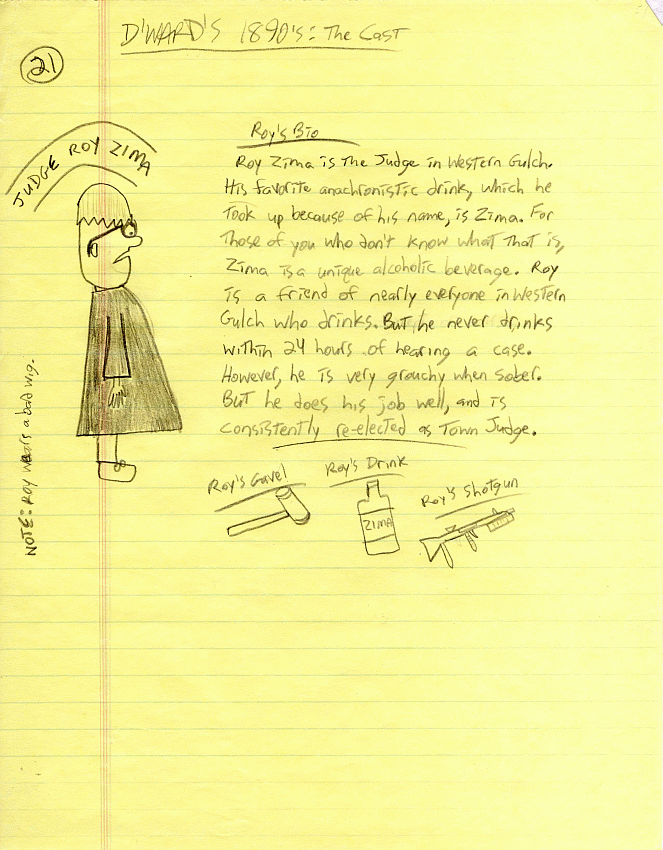 D'WARD'S 1890's: The Cast
21
JUDGE ROY ZIMA
Roy's Bio
Roy Zima is the Judge in Western Gulch.
His favorite anachronistic drink, which he
took up because of his name, is Zima. For
those of you who don't know what that is,
Zima is a unique alcoholic beverage. Roy
is a friend of nearly everyone in Western
Gulch who drinks. But he never drinks
within 24 hours of hearing a case.
However, he is very grouchy when sober.
But he does his job well, and is
consistently re-elected as Town Judge.
NOTE: ROY wears a bad wig.
Roy's Gavel
Roy's Drink
Roy's Shotgun
ZIMA